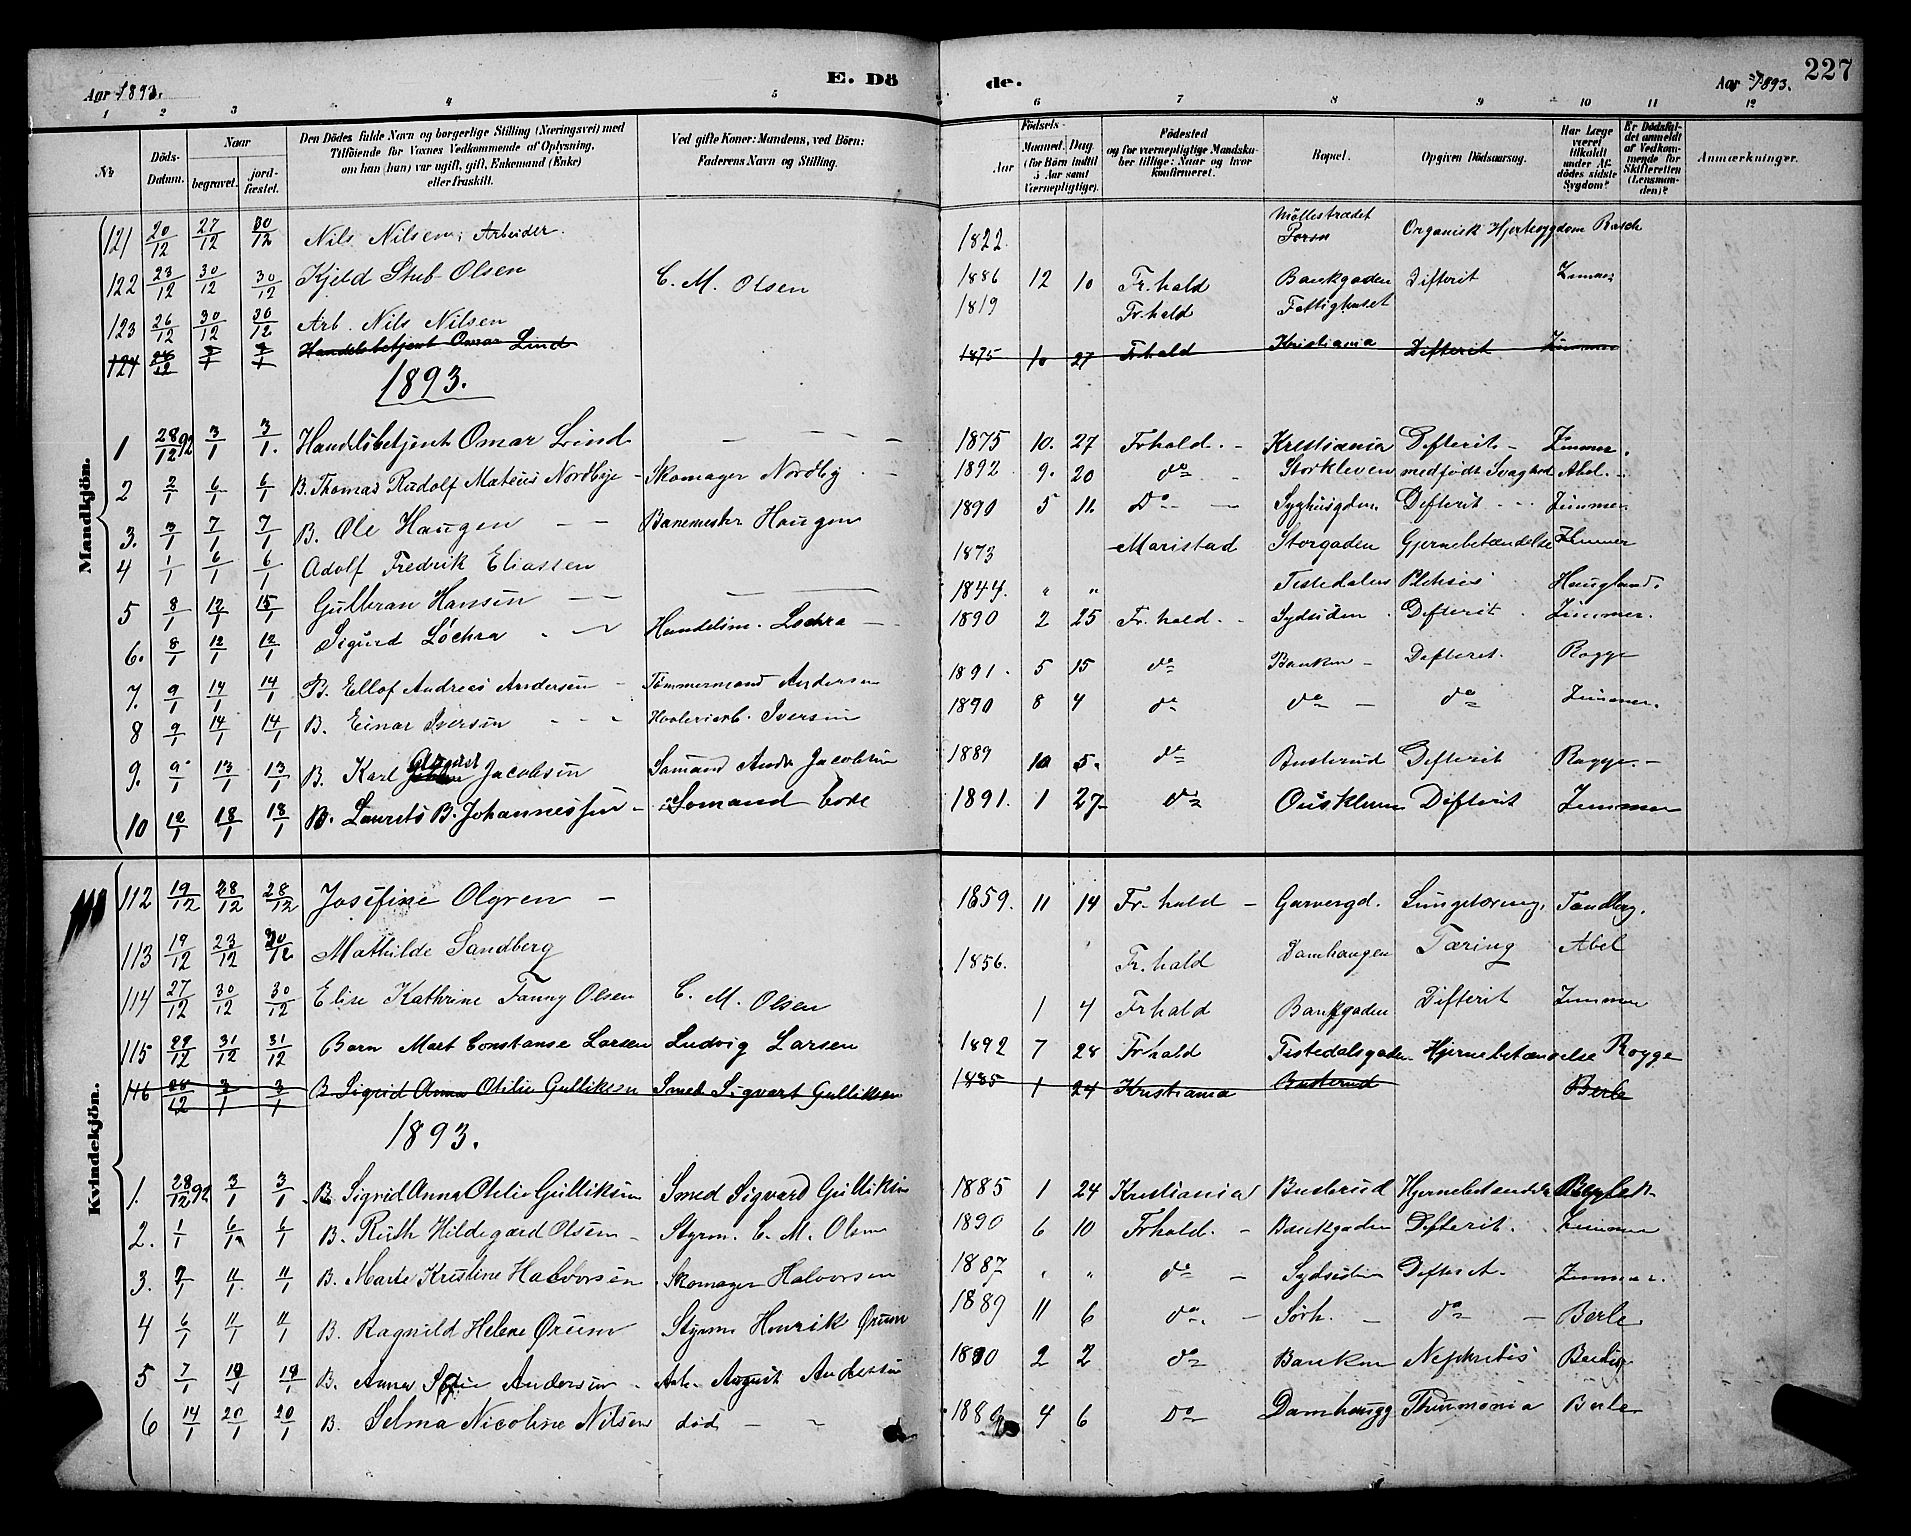 Aar 1893. E. Dö de. Aar 1893. 227
1 2 3 4 5 6 7 8 9 10 11 12
No
Döds-Datum.
Naar
begravet.
jordfæstet.
Den Dödes fulde Navn og borgerlige Stilling (Næringsvei) med Tilföiende for Voxnes Vedkommende af Oplysning, om han (hun) var ugift, gift, Enkemand (Enke) eller fraskilt.
Ved gifte Koner: Mandens, ved Börn: Faderens Navn og Stilling.
Födsels-
Aar
Maaned, Dag
(for Börn indtil 5 Aar samt Værnepligtige).
Födested og for værnepligtige Mandskaber tillige: Naar og hvor konfirmeret.
Bopæl.
Opgiven Dödsaarsag.
Har Læge været tilkaldt under Afdödes sidste Sygdom?
Er Dödsfaldet anmeldt af Vedkommende for Skifteretten (Lensmanden)?
Anmærkninger.
Mandkjön.
121 20/12 27/12 30/12 Nils Nilsen, Arbeider. 1822. Möllestrædet Porsn Organisk Hjertesygdom Rasch
122 23/12 30/12 30/12 Kjeld Stub Olsen C. M. Olsen 1886 12 10 Fr.hald Bankgaden Difterit Zimmer
123 26/12 30/12 30/12 Arb. Nils Nilsen 1819 Fr.hald Fattighuset
124 28/12 3/1 3/1 Handelsbetjent Omar Lind 1875 10 27 Frhald Kristiania Difterit Zimmer
1893.
1 28/12 92 3/1 3/1. Handelsbetjent Omar Lind — — — 1875 10. 27 Frhald. - Kristiania Difterit - Zimmer.
2 2/1 6/1 6/1 B. Thomas Rudolf Mateus Nordbye - Skomager Nordby - 1892 9. 20 do - Storkleven medfödt Svaghed Abel. -
3. 3/1 7/1 7/1 B. Ole Haugen - - Banemester Haugen 1890 5 11 Do - - Syghusgden. Difterit - - Zimmer
4 1/1 6/1 6/1 Adolf Fredrik Eliassen 1873 Maristad Storgaden Hjernebetændelse Zimmer
5 8/1 12/1 15/1 Gulbran Hansen - - — — 1844. " " Tistedalen Haugland.
6. 8/1 12/1 12/1 Sigurd Löchra - - Handelsm. Lochra - 1890 2 25 Fr.hald. - Sydsiden. Difterit. Zimmer.
7. 9/1 14/1 14/1 B. Ellof Andreas Andersen - Tömmermand Andersen 1891. 5 15 do Banken - Difterit. Rogge
8 9/1 14/1 14/1 B. Einar Iversen - - - Iversen 1890 8 4 do do - do Zimmer.
9. 9/1 13/1 13/1 B. Karl August Jacobsen Sömand Andr Jacobsen 1889 10 5. do Busterud Difterit Rogge. -
10 12/1 18/1 18/1 B. Laurits B. Johannessen - Sömand Bode 1891. 1 27 do Ouskleven Difterit Zimmer
Kvindekjön.
112 19/12 28/12 28/12 Josefine Olgren - 1859. 11 14 Fr.hald - Garvergd. Lungetæring, Tandberg.
113 19/12 23/12 30/12 Mathilde Sandberg 1856. Fr.hald Damhaugen Tæring Abel
114 27/12 30/12 30/12 Elise Kathrine Fanny Olsen C. M. Olsen 1 4 Frhald Bankgaden Difterit Zimmer
115 29/12 31/12 31/12 Barn Mart Constanse Larsen Ludvig Larsen 1892 7 28 Fr.hald Tistedalsgaden Hjernebetændelse Rogge
116 28/12 3/1 3/1 B Sigrid Anna Otilie Gulliksen Smed Sigvart Gulliksen 1885 1 24 Kristiania Busterud Berle
1893.
1. 28/12 92 3/1 3/1 B. Sigrid Anna Otilie Gulliksen Smed Sigvard Gulliksen 1885 1 24 Kristiania Busterud Hjernebetændelse
2. 1/1 6/1 6/1 B. Ruth Hildegard Olsen - Styrm. C. M. Olsen 1890 6 10 Frhald. - Bankgaden Difterit. Zimmer
3. 7/1 11/1 11/1 B. Marte Kristine Halvorsen Skomager Halvorsen 1887 " " do - Sydsiden Difterit. Zimmer.
4 6/1 11/1 11/1 B. Ragnild Helene Ørum Styrm Henrik Ørum 1889 11 6 do. - Sörh. - do - Berle
5 7/1 19/1 19/1 B. Anna Sofie Andersen - Arb. August Andersen 1890 2 2 do Banken Nefritis
6 14/1 20/1 20/1 B. Selma Nicoline Nilsen död - - 1889 4 6 Do Damhaugg Pneumonia Berle